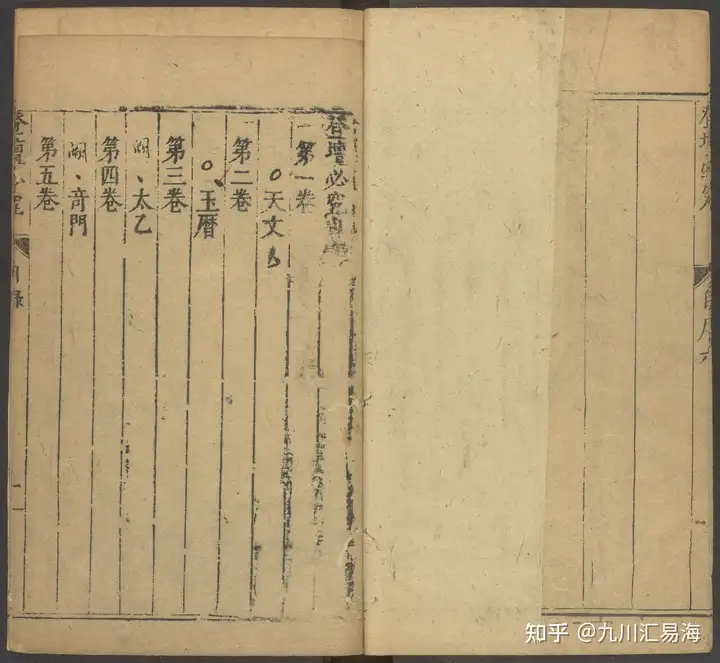 登壇必究
第一卷
○天文
第二卷
○玉暦
第三卷
、太乙
第四卷
、竒門
第五卷
登壇必究
目録
知乎 @九川汇易海